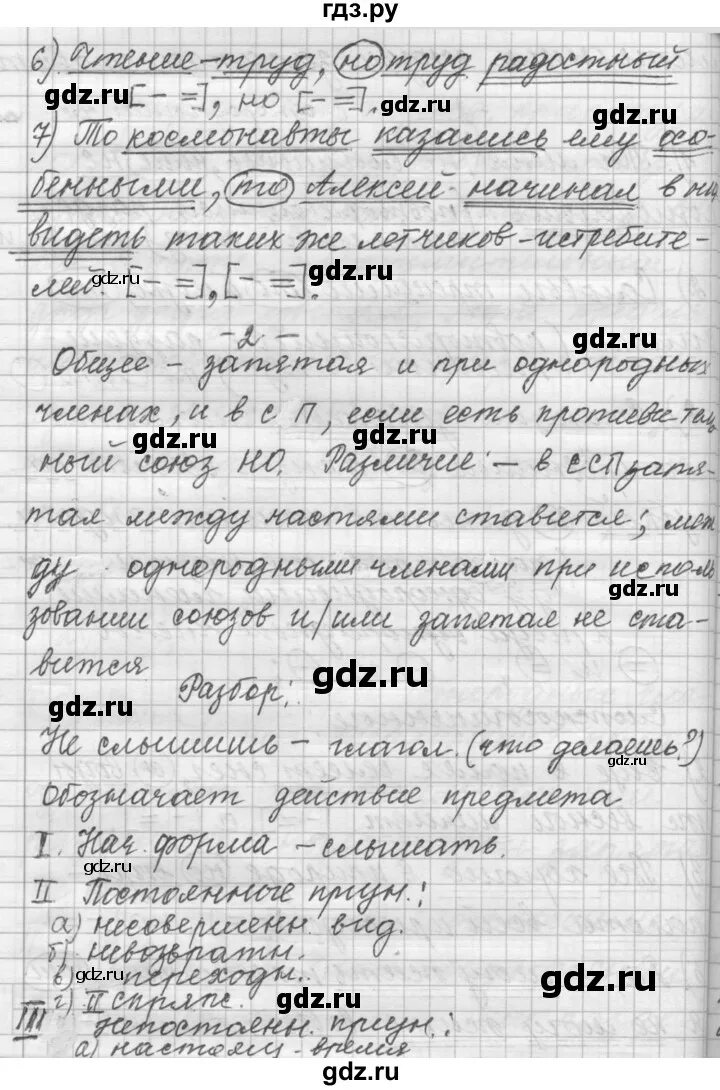 гдз.ру
6) Чтение - труд, но труд радостный
gdz.ru [- =], но [- =]. gdz.ru
7) То космонавты казались ему осо-
бенными, то Алексей начинал в них
видеть таких же летчиков-истребите-
лей. [- =], [- =].
gdz.ru gdz.ru
-2-
gdz.ru gdz.ru
Общее - запятая и при однородных
членах, и в с П, если есть противитель
gdz.ru gdz.ru
ный союз НО. Различие - в ССП запя-
тая между частями ставится; меж
ду однородными членами при исполь
gdz.ru gdz.ru
зовании союзов и/или запятая не ста-
вится
gdz.ru gdz.ru
Разбор:
Не слышишь - глагол. (что делаешь?)
gdz.ru
обозначает действие предмета
I. Нач. форма - слышать.
gdz.ru gdz.ru
II Постоянные призн.:
а) несовершенн. вид.
б) невозвратн.
в) переходн.
gdz.ru gdz.ru
г) II спряж.
III непостоянн. призн.:
а) настоящ. время
gdz.ru